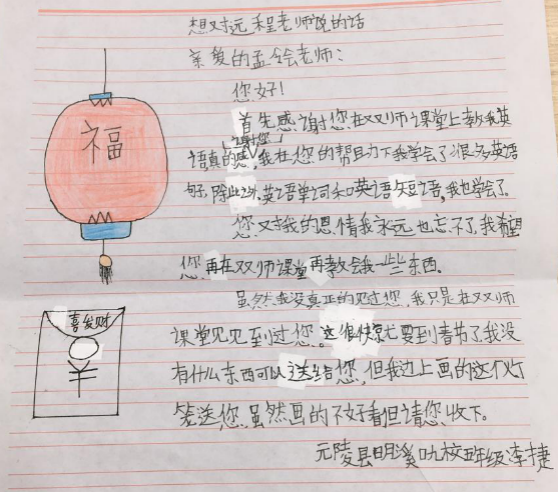 想对远程老师说的话
亲爱的孟绘老师：
您好！
首先感谢您在双师课堂上教我英
语真的感谢您，我在您的帮且力下我学会了很多英语
句子，除此之外，英语单词和英语短语，我也学会了。
您对我的恩情我永远也忘不了，我希望
您再在双师课堂再教会我一些东西。
虽然我没真正的见过您，我只是在双师
课堂见见到过您。这很快就要到春节了我没
有什么东西可以送给您，但我边上画的这个灯
笼送您，虽然画的不好看但请您收下。
元陵县明溪口九校班级李捷
福
喜发财
羊